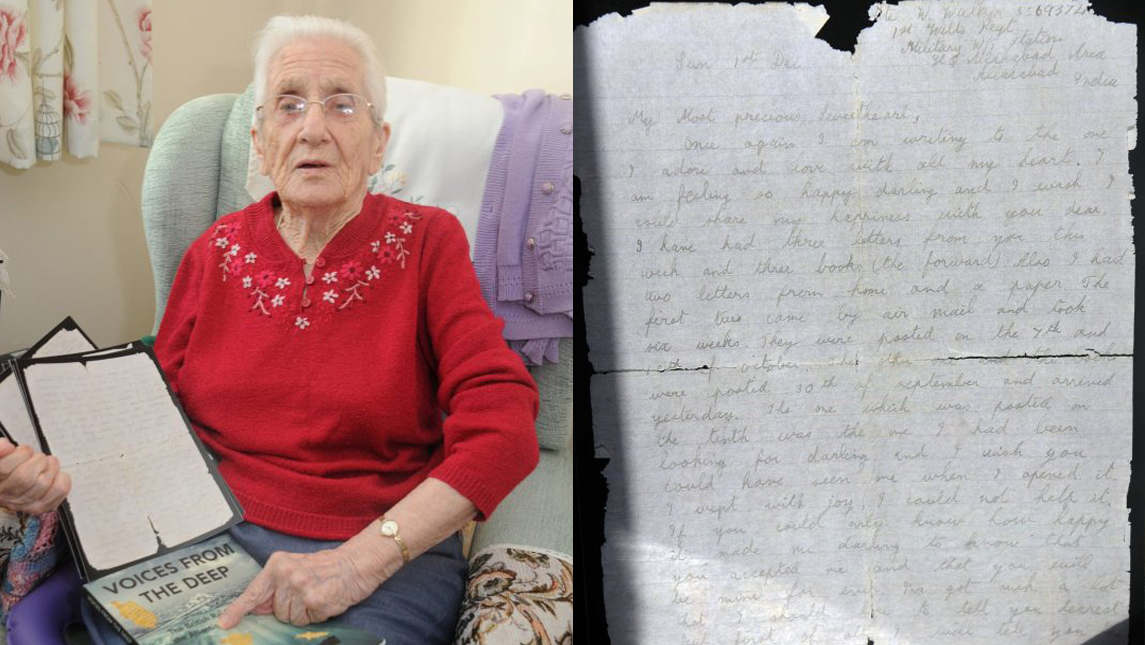 VOICES FROM
THE DEEP
The British
1st Wilts Regt
Military
India
Sun 1st Dec
My Most precious Sweetheart,
Once again I am writing to the one
I adore and love with all my heart. I
am feeling so happy darling and I wish I
could share my happiness with you dear.
I have had three letters from you this
week and three books (the forward). Also I had
two letters from home and a paper. The
first two came by air mail and took
six weeks. They were posted on the 7th and
of October. The
were posted 30th of september and arrived
yesterday. The one which was posted on
the tenth was the one I had been
looking for darling and I wish you
could have seen me when I opened it.
I wept with joy, I could not help it.
If you could only know how happy
it made me darling to know that
you accepted me and that you will
be mine for ever. Ive got such a lot
that I should love to tell you dearest
but first of all I will tell you